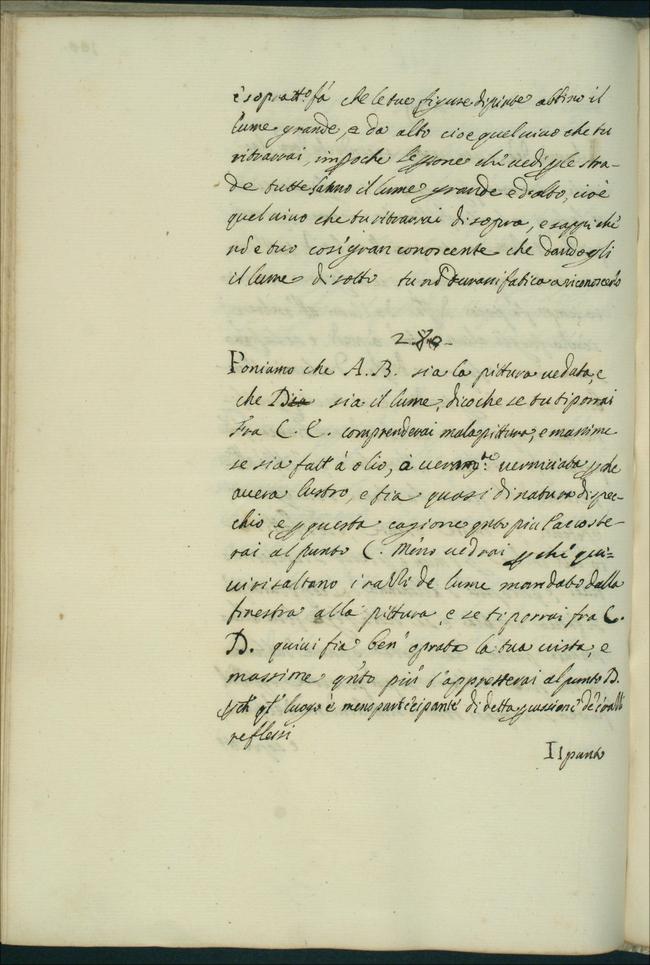 e sopratt.o fà che le tue figure dipinte abbino il
lume grande, e da alto cioè quel uiuo che tu
ritrarrai, impoche le psone chè uedi p le stra-
de tutte hanno il lume grande e d'alto, cioè
quel uiuo che tu ritrarrai di sopra, e sappi chè
nō è tuo così gran conoscente che dandogli
il lume di sotto tu nō durassi fatica a riconoscerlo
Poniamo che A. B. sia la pittura ueduta, e
che D sia il lume, dico che se tu ti porrai
fra C. E. comprenderai mala pittura, e massime
se sia fatt' à olio, ò ueram.te uerniciata p che
auera lustro, e fia quasi di natura di spec-
chio, e p questa cagione qnto più t'accoste-
rai al punto C. meno uedrai p chè qui-
ui risaltano i razzi de lume mandato dalla
finestra alla pittura, e se ti porrai fra E.
D. quiui fia ben' oprata la tua uista, e
massime qnto più t'appresserai al punto D.
p ch' qt' luogo è meno partecipante di detta pcussione de' razzi
reflessi
Il punto